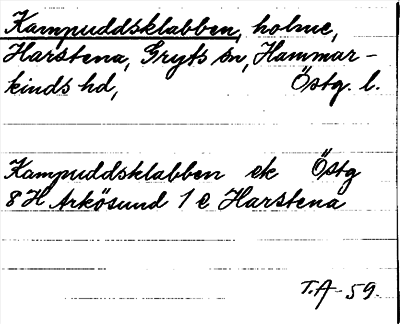 Kampuddsklabben, holme,
Harstena, Gryts sn, Hammar-
kinds hd, Östg. l.
Kampuddsklabben ek Östg
8 H Arkösund 1 e Harstena
T.A-59.